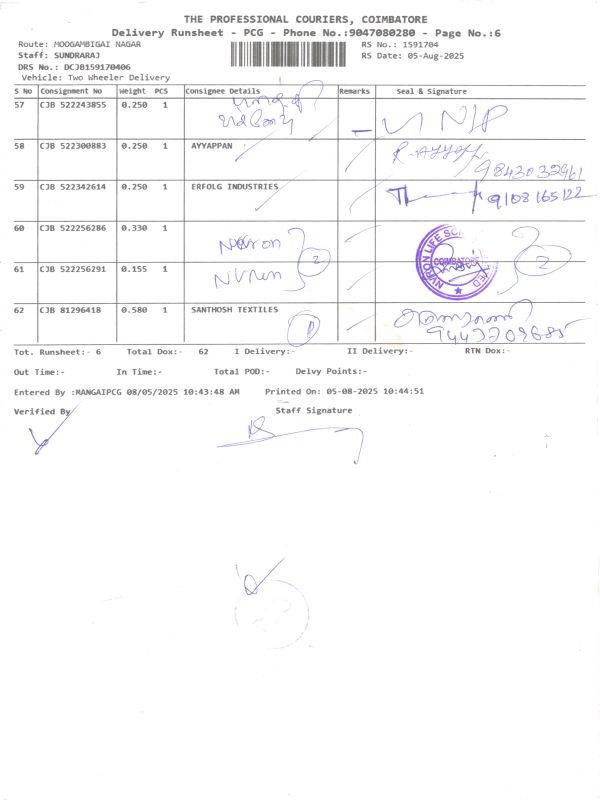 THE PROFESSIONAL COURIERS, COIMBATORE
Delivery Runsheet - PCG - Phone No.:9047080280 - Page No.:6
Route: MOOGAMBIGAI NAGAR RS No.: 1591704
Staff: SUNDRARAJ RS Date: 05-Aug-2025
DRS No.: DCJB159170406
Vehicle: Two Wheeler Delivery
S No Consignment No Weight PCS Consignee Details Remarks Seal & Signature
57 CJB 522243855 0.250 1
58 CJB 522300883 0.250 1 AYYAPPAN 9843032961
59 CJB 522342614 0.250 1 ERFOLG INDUSTRIES 9108165122
60 CJB 522256286 0.330 1 2 NVRON LIFE COIMBATORE 2
61 CJB 522256291 0.155 1
62 CJB 81296418 0.580 1 SANTHOSH TEXTILES
Tot. Runsheet:- 6 Total Dox:- 62 I Delivery:- II Delivery:- RTN Dox:-
Out Time:- In Time:- Total POD:- Delvy Points:-
Entered By :MANGAIPCG 08/05/2025 10:43:48 AM Printed On: 05-08-2025 10:44:51
Verified By Staff Signature